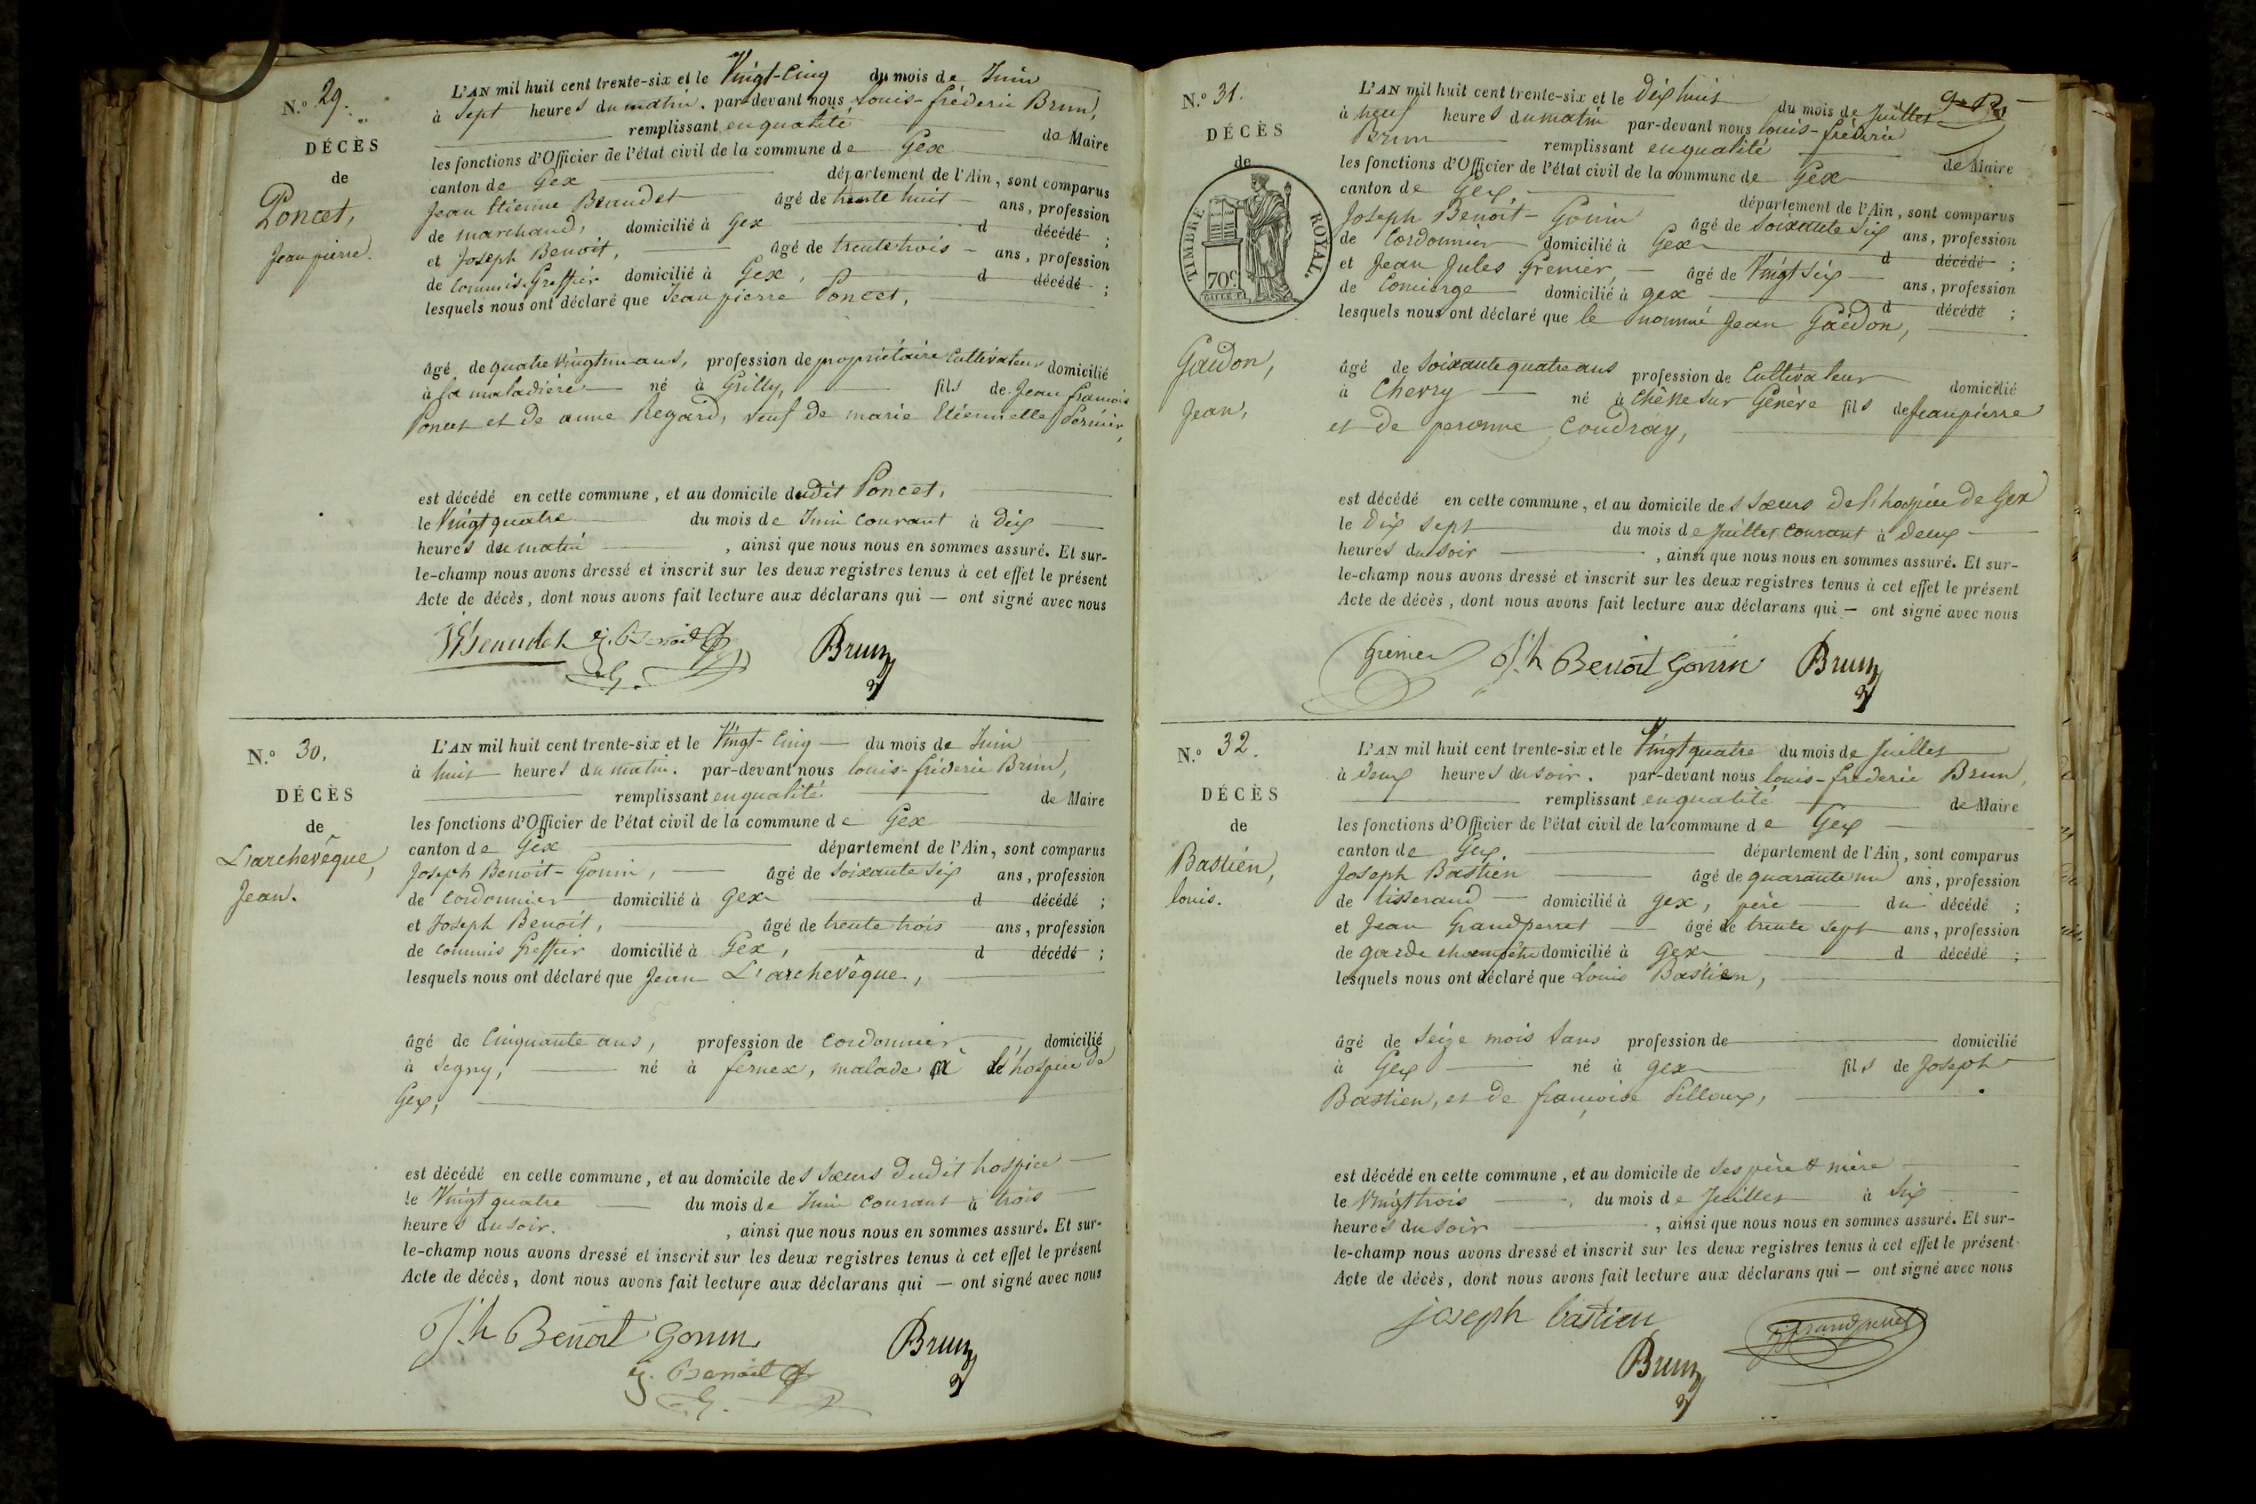 N.º 29.
DÉCÈS
de
Poncet,
Jean pierre.
L'AN mil huit cent trente-six et le Vingt-Cinq du mois de Juin
à Sept heures du matin. par-devant nous Louis-frédéric Brun,
remplissant en qualité de Maire
les fonctions d'Officier de l'état civil de la commune de Gex
canton de Gex département de l'Ain, sont comparus
Jean Etienne Beaudet âgé de trente huit ans, profession
de marchand, domicilié à Gex d décédé ;
et Joseph Benoit, âgé de trente trois ans, profession
de Commis Greffier domicilié à Gex, d décédé ;
lesquels nous ont déclaré que Jean pierre Poncet,
âgé de quatre Vingt un ans, profession de propriétaire Cultivateur domicilié
à la maladière né à Grilly, fils de Jean françois
Poncet et de anne Regard, Veuf de marie Etiennette Pernier,
est décédé en cette commune, et au domicile dudit Poncet,
le Vingt quatre du mois de Juin courant à dix
heures du matin , ainsi que nous nous en sommes assuré. Et sur-
le-champ nous avons dressé et inscrit sur les deux registres tenus à cet effet le présent
Acte de décès, dont nous avons fait lecture aux déclarans qui — ont signé avec nous
Beaudet j. Benoit Brun
N.º 30.
DÉCÈS
de
L'archevêque,
Jean.
L'AN mil huit cent trente-six et le Vingt-Cinq du mois de Juin
à huit heures du matin. par-devant nous louis-fréderic Brun,
remplissant en qualité de Maire
les fonctions d'Officier de l'état civil de la commune de Gex
canton de Gex département de l'Ain, sont comparus
Joseph Benoit-Gonin, âgé de soixante Six ans, profession
de Cordonnier domicilié à Gex d décédé ;
et Joseph Benoit, âgé de trente trois ans, profession
de commis Greffier domicilié à Gex, d décédé ;
lesquels nous ont déclaré que Jean L'archevêque,
âgé de Cinquante ans, profession de cordonnier domicilié
à Segny, né à fernex, malade à l'hospice de
Gex,
est décédé en cette commune, et au domicile des Sœurs dudit hospice
le Vingt quatre du mois de Juin courant à trois
heures du soir. , ainsi que nous nous en sommes assuré. Et sur-
le-champ nous avons dressé et inscrit sur les deux registres tenus à cet effet le présent
Acte de décès, dont nous avons fait lecture aux déclarans qui — ont signé avec nous
Jh Benoit Gonin Brun
j. Benoit
N.º 31.
DÉCÈS
de
TIMBRE ROYAL.
70 c.
Gaidon,
Jean,
L'AN mil huit cent trente-six et le Dix huit du mois de Juillet
à neuf heures du matin par-devant nous louis-fréderic
Brun remplissant en qualité de Maire
les fonctions d'Officier de l'état civil de la commune de Gex
canton de Gex, département de l'Ain, sont comparus
Joseph Benoit-Gonin âgé de Soixante Six ans, profession
de Cordonnier domicilié à Gex d décédé ;
et Jean Jules Grenier, âgé de Vingt Six ans, profession
de Concierge domicilié à Gex d décédé ;
lesquels nous ont déclaré que le nommé Jean Gaidon,
âgé de Soixante quatre ans profession de Cultivateur domicilié
à Chevry né à Chêne sur Genève fils de Jean pierre
et de peronne Coudray,
est décédé en cette commune, et au domicile des Sœurs de l'hospice de Gex
le Dix sept du mois de Juillet courant à deux
heures du soir , ainsi que nous nous en sommes assuré. Et sur-
le-champ nous avons dressé et inscrit sur les deux registres tenus à cet effet le présent
Acte de décès, dont nous avons fait lecture aux déclarans qui — ont signé avec nous
Grenier Jh Benoit Gonin Brun
N.º 32.
DÉCÈS
de
Bastien,
louis.
L'AN mil huit cent trente-six et le Vingt quatre du mois de Juillet
à deux heures du soir. par-devant nous louis-fréderic Brun,
remplissant en qualité de Maire
les fonctions d'Officier de l'état civil de la commune de Gex
canton de Gex, département de l'Ain, sont comparus
Joseph Bastien âgé de quarante un ans, profession
de tisserand domicilié à Gex, père du décédé ;
et Jean Grandperret âgé de trente sept ans, profession
de garde champêtre domicilié à Gex d décédé ;
lesquels nous ont déclaré que Louis Bastien,
âgé de Seize mois Sans profession de domicilié
à Gex né à Gex fils de Joseph
Bastien, et de françoise Pilloux,
est décédé en cette commune, et au domicile de Ses père & mère
le Vingt trois du mois de Juillet à Six
heures du soir , ainsi que nous nous en sommes assuré. Et sur-
le-champ nous avons dressé et inscrit sur les deux registres tenus à cet effet le présent
Acte de décès, dont nous avons fait lecture aux déclarans qui — ont signé avec nous
joseph bastien Grandperret
Brun